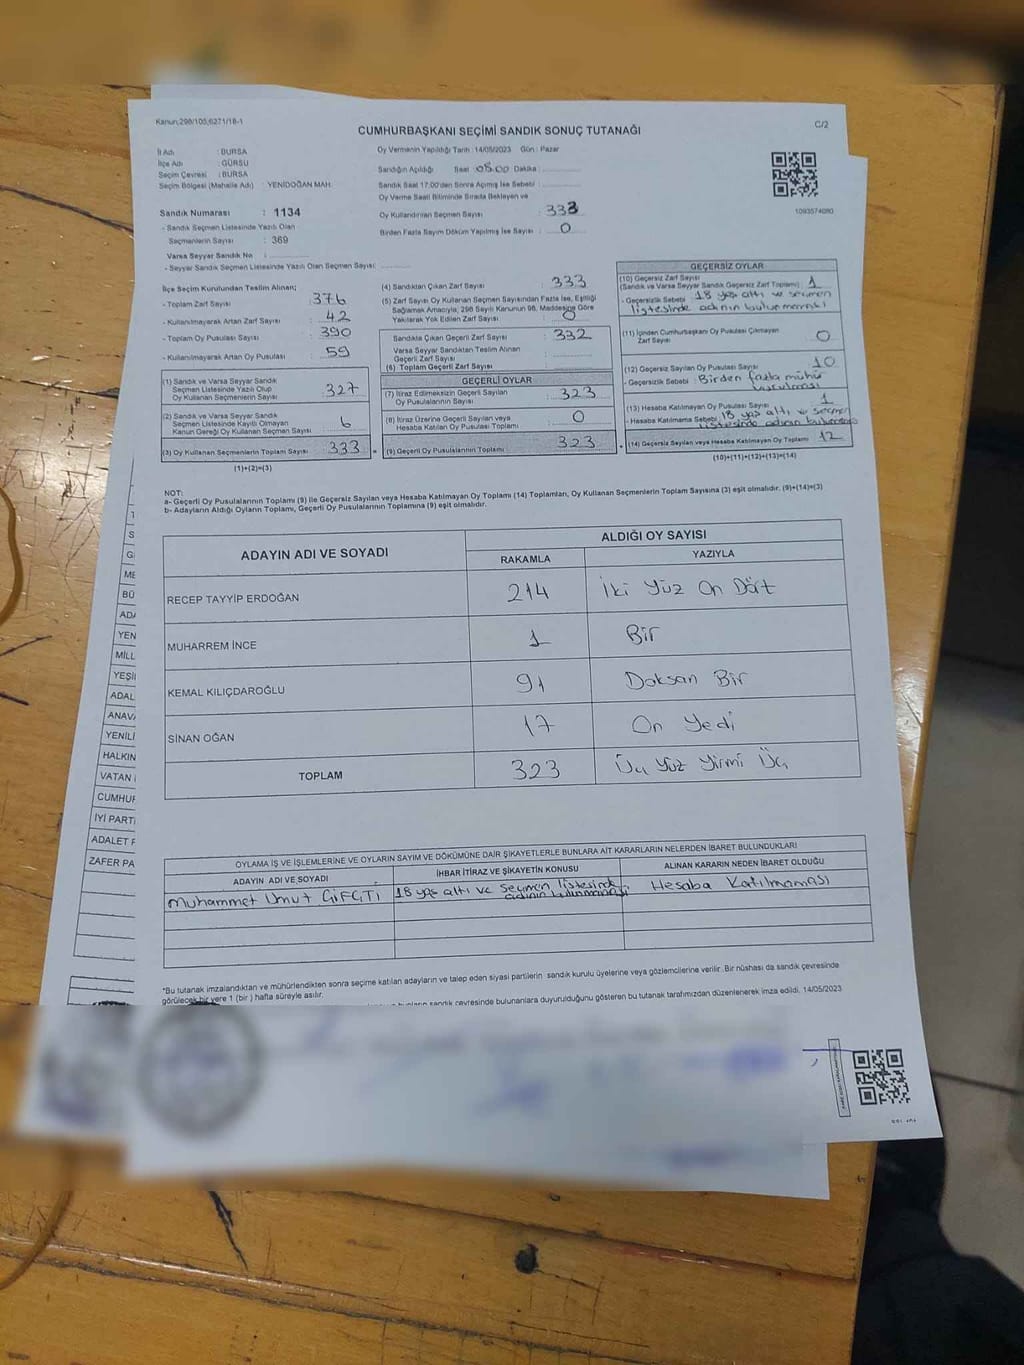 Kanun;298/105;6271/18-1
C/2
CUMHURBAŞKANI SEÇİMİ SANDIK SONUÇ TUTANAĞI
İl Adı : BURSA
İlçe Adı : GÜRSU
Seçim Çevresi : BURSA
Seçim Bölgesi (Mahalle Adı) : YENİDOĞAN MAH.
Sandık Numarası : 1134
- Sandık Seçmen Listesinde Yazılı Olan
Seçmenlerin Sayısı : 369
Varsa Seyyar Sandık No :
- Seyyar Sandık Seçmen Listesinde Yazılı Olan Seçmen Sayısı:
Oy Vermenin Yapıldığı Tarih : 14/05/2023 Gün : Pazar
Sandığın Açıldığı Saat : 08.00 Dakika :
Sandık Saat 17:00'den Sonra Açımış İse Sebebi :
Oy Verme Saati Bitiminde Sırada Bekleyen ve
Oy Kullandırılan Seçmen Sayısı : 333
Birden Fazla Sayım Döküm Yapılmış İse Sayısı : 0
1093574080
İlçe Seçim Kurulundan Teslim Alınan;
- Toplam Zarf Sayısı : 376
- Kullanılmayarak Artan Zarf Sayısı : 42
- Toplam Oy Pusulası Sayısı : 390
- Kullanılmayarak Artan Oy Pusulası : 59
(1) Sandık ve Varsa Seyyar Sandık
Seçmen Listesinde Yazılı Olup
Oy Kullanan Seçmenlerin Sayısı : 327
(2) Sandık ve Varsa Seyyar Sandık
Seçmen Listesinde Kayıtlı Olmayan
Kanun Gereği Oy Kullanan Seçmen Sayısı : 6
(3) Oy Kullanan Seçmenlerin Toplam Sayısı : 333
(1)+(2)=(3)
(4) Sandıktan Çıkan Zarf Sayısı : 333
(5) Zarf Sayısı Oy Kullanan Seçmen Sayısından Fazla İse, Eşitliği
Sağlamak Amacıyla; 298 Sayılı Kanunun 98. Maddesine Göre
Yakılarak Yok Edilen Zarf Sayısı : 0
Sandıkta Çıkan Geçerli Zarf Sayısı : 332
Varsa Seyyar Sandıktan Teslim Alınan
Geçerli Zarf Sayısı :
(6) Toplam Geçerli Zarf Sayısı :
GEÇERLİ OYLAR
(7) İtiraz Edilmeksizin Geçerli Sayılan
Oy Pusulalarının Sayısı : 323
(8) İtiraz Üzerine Geçerli Sayılan veya
Hesaba Katılan Oy Pusulası Toplamı : 0
(9) Geçerli Oy Pusulalarının Toplamı : 323
GEÇERSİZ OYLAR
(10) Geçersiz Zarf Sayısı
(Sandık ve Varsa Seyyar Sandık Geçersiz Zarf Toplamı) : 1
- Geçersizlik Sebebi : 18 yaş altı ve seçmen
listesinde adının bulunmaması
(11) İçinden Cumhurbaşkanı Oy Pusulası Çıkmayan
Zarf Sayısı : 0
(12) Geçersiz Sayılan Oy Pusulası Sayısı : 10
- Geçersizlik Sebebi : Birden fazla mühür
(13) Hesaba Katılmayan Oy Pusulası Sayısı : 1
- Hesaba Katılmama Sebebi : 18 yaş altı ve seçmen
listesinde adının bulunmaması
(14) Geçersiz Sayılan veya Hesaba Katılmayan Oy Toplamı : 12
(10)+(11)+(12)+(13)=(14)
NOT:
a- Geçerli Oy Pusulalarının Toplamı (9) ile Geçersiz Sayılan veya Hesaba Katılmayan Oy Toplamı (14) Toplamları, Oy Kullanan Seçmenlerin Toplam Sayısına (3) eşit olmalıdır. (9)+(14)=(3)
b- Adayların Aldığı Oyların Toplamı, Geçerli Oy Pusulalarının Toplamına (9) eşit olmalıdır.
ADAYIN ADI VE SOYADI
ALDIĞI OY SAYISI
RAKAMLA YAZIYLA
RECEP TAYYİP ERDOĞAN 214 İki Yüz On Dört
MUHARREM İNCE 1 Bir
KEMAL KILIÇDAROĞLU 91 Doksan Bir
SİNAN OĞAN 17 On Yedi
TOPLAM 323 Üç Yüz Yirmi Üç
OYLAMA İŞ VE İŞLEMLERİNE VE OYLARIN SAYIM VE DÖKÜMÜNE DAİR ŞİKAYETLERLE BUNLARA AİT KARARLARIN NELERDEN İBARET BULUNDUKLARI
ADAYIN ADI VE SOYADI İHBAR İTİRAZ VE ŞİKAYETİN KONUSU ALINAN KARARIN NEDEN İBARET OLDUĞU
Muhammet Umut ÇİFÇTİ 18 yaş altı ve seçmen listesinde adının bulunmaması Hesaba Katılmaması
*Bu tutanak imzalandıktan ve mühürlendikten sonra seçime katılan adayların ve talep eden siyasi partilerin sandık kurulu üyelerine veya gözlemcilerine verilir. Bir nüshası da sandık çevresinde
görülecek bir yere 1 (bir) hafta süreyle asılır.
sandık çevresinde bulunanlara duyurulduğunu gösteren bu tutanak tarafımızdan düzenlenerek imza edildi. 14/05/2023
T
S
G
ME
BÜ
ADA
YEN
MİLL
YEŞİ
ADAL
ANAVA
YENİL
HALKIN
VATAN
CUMHUR
İYİ PARTİ
ADALET P
ZAFER PA